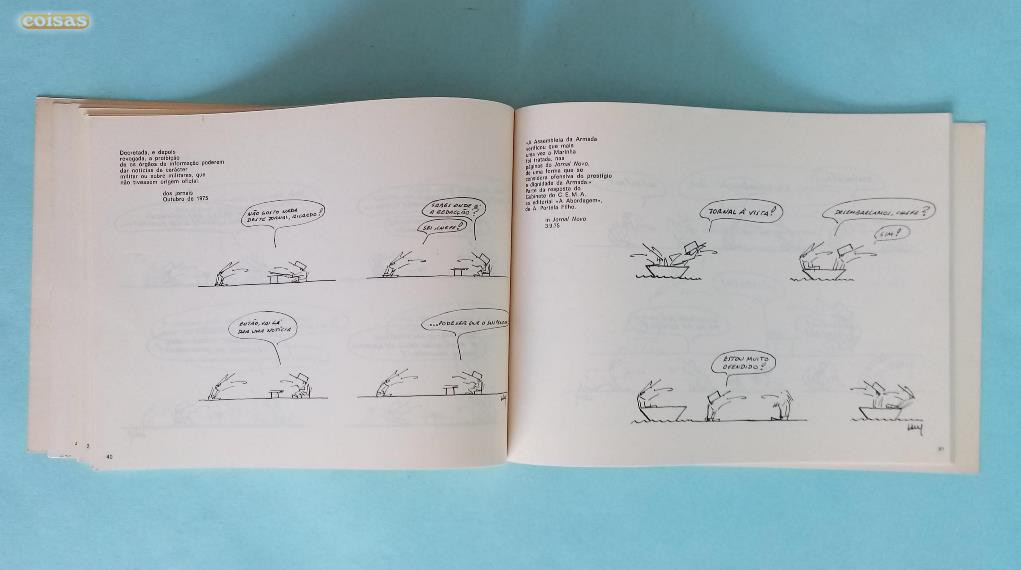 coisas
Decretada, e depois
revogada, a proibição
de os órgãos de informação poderem
dar notícias de carácter
militar ou sobre militares, que
não tivessem origem oficial.
dos jornais
Outubro de 1975
NÃO GOSTO NADA
DESTE JORNAL, RICARDO!
SABES ONDE É
A REDACÇÃO?
SEI CHEFE!
ENTÃO, VAI LÁ
DAR UMA NOTÍCIA
...PODE SER QUE O
40
2
«A Assembleia da Armada
verificou que mais
uma vez a Marinha
foi tratada, nas
páginas do Jornal Novo,
de uma forma que se
considera ofensiva do prestígio
e dignidade da Armada.»
Parte da resposta do
Gabinete do C. E. M. A.
ao editorial «A Abordagem»,
de A. Portela Filho.
in Jornal Novo
3.9.75
JORNAL À VISTA!
DESEMBARCAMOS, CHEFE?
SIM!
ESTOU MUITO
OFENDIDO!